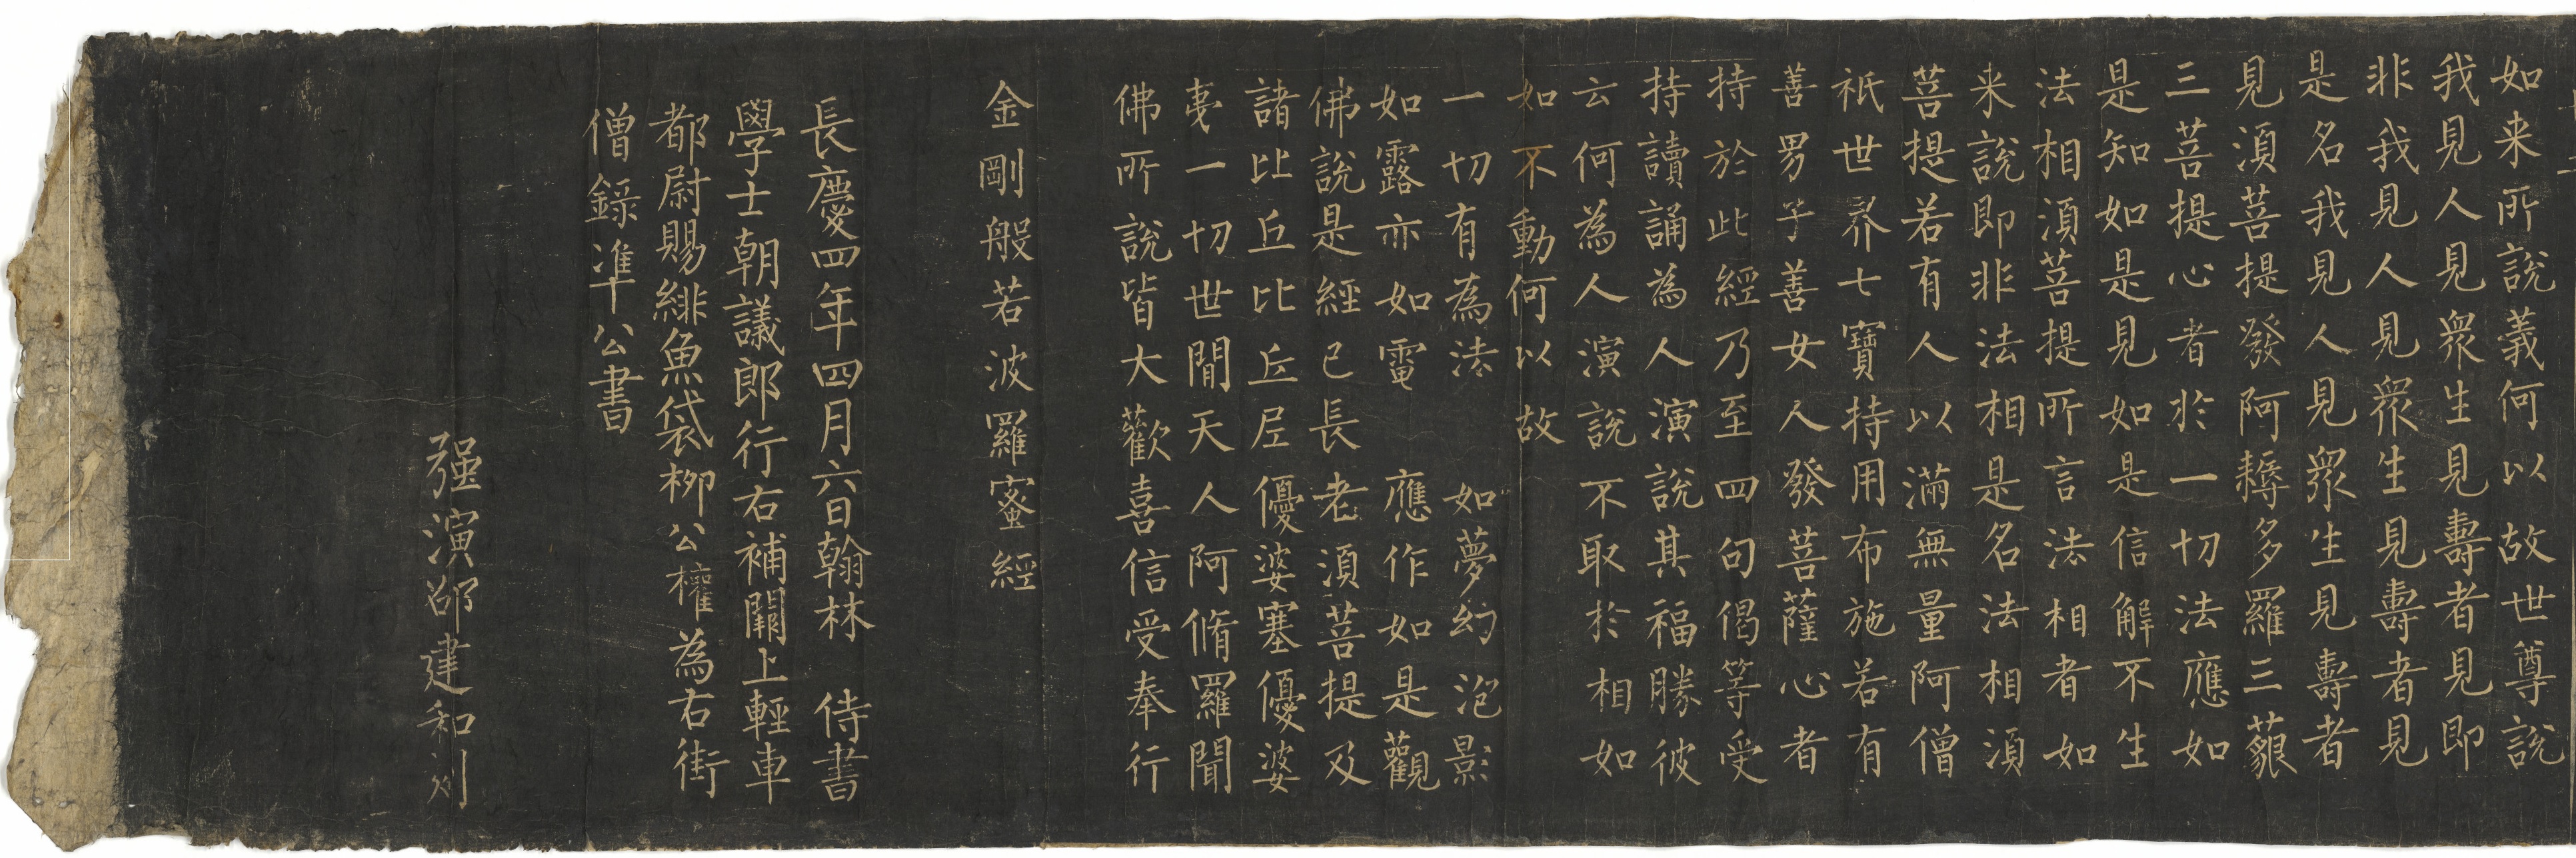 如来所說義何以故世尊說
我見人見眾生見壽者見即
非我見人見眾生見壽者見
是名我見人見眾生見壽者
見湏菩提發阿耨多羅三藐
三菩提心者於一切法應如
是知如是見如是信解不生
法相湏菩提所言法相者如
来說即非法相是名法相湏
菩提若有人以滿無量阿僧
祇世界七寶持用布施若有
善男子善女人發菩薩心者
持於此經乃至四句偈等受
持讀誦為人演說其福勝彼
云何為人演說不取於相如
如不動何以故
一切有為法　如夢幻泡影
如露亦如電　應作如是觀
佛說是經已長老湏菩提及
諸比丘比丘尼優婆塞優婆
夷一切世間天人阿脩羅聞
佛所說皆大歡喜信受奉行
金剛般若波羅蜜經
長慶四年四月六日翰林　侍書
學士朝議郎行右補闕上輕車
都尉賜緋魚袋柳公權為右街
僧錄準公書
强演邵建和刋